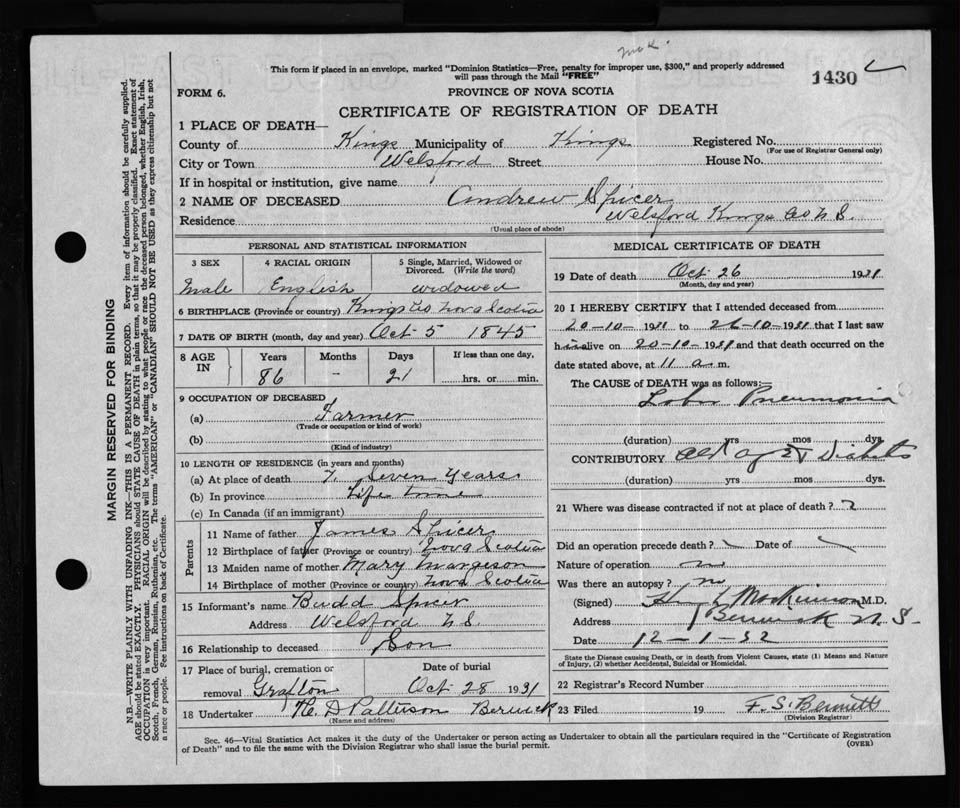 This form if placed in an envelope, marked "Dominion Statistics—Free, penalty for improper use, $300," and properly addressed
will pass through the Mail "FREE"
1430
FORM 6.
PROVINCE OF NOVA SCOTIA
CERTIFICATE OF REGISTRATION OF DEATH
1 PLACE OF DEATH—
County of Kings Municipality of Kings Registered No.
(For use of Registrar General only)
City or Town Welsford Street House No.
If in hospital or institution, give name
2 NAME OF DECEASED Andrew Spicer
Residence Welsford Kings Co N.S.
(Usual place of abode)
PERSONAL AND STATISTICAL INFORMATION
3 SEX
Male
4 RACIAL ORIGIN
English
5 Single, Married, Widowed or
Divorced. (Write the word)
widowed
6 BIRTHPLACE (Province or country) Kings Co Nova Scotia
7 DATE OF BIRTH (month, day and year) Oct 5 1845
8 AGE IN
Years Months Days If less than one day,
86 - 21 hrs. or min.
9 OCCUPATION OF DECEASED
(a) Farmer
(Trade or occupation or kind of work)
(b)
(Kind of industry)
10 LENGTH OF RESIDENCE (in years and months)
(a) At place of death 7. Seven Years
(b) In province Life time
(c) In Canada (if an immigrant)
Parents
11 Name of father James Spicer
12 Birthplace of father (Province or country) Nova Scotia
13 Maiden name of mother Mary Margeson
14 Birthplace of mother (Province or country) Nova Scotia
15 Informant's name Budd Spicer
Address Welsford N.S.
16 Relationship to deceased Son
17 Place of burial, cremation or Date of burial
removal Grafton Oct 28 1931
18 Undertaker H. D Patterson Berwick
(Name and address)
MEDICAL CERTIFICATE OF DEATH
19 Date of death Oct 26 1931
(Month, day and year)
20 I HEREBY CERTIFY that I attended deceased from
20-10-1931 to 26-10-1931 that I last saw
him alive on 20-10-1931 and that death occurred on the
date stated above, at 11 a m.
The CAUSE OF DEATH was as follows:—
Lobar Pneumonia
(duration) yrs mos dys.
CONTRIBUTORY old age
(duration) yrs. mos. dys.
21 Where was disease contracted if not at place of death?
Did an operation precede death? Date of
Nature of operation
Was there an autopsy? no
(Signed) MacKinnon M.D.
Address Berwick N.S.
Date 12-1-32
State the Disease causing Death, or in death from Violent Causes, state (1) Means and Nature
of Injury, (2) whether Accidental, Suicidal or Homicidal.
22 Registrar's Record Number
23 Filed 19 F. S. Bennett
(Division Registrar)
Sec. 46—Vital Statistics Act makes it the duty of the Undertaker or person acting as Undertaker to obtain all the particulars required in the "Certificate of Registration
of Death" and to file the same with the Division Registrar who shall issue the burial permit.
(OVER)
MARGIN RESERVED FOR BINDING
N.B.—WRITE PLAINLY WITH UNFADING INK—THIS IS A PERMANENT RECORD. Every item of information should be carefully supplied.
AGE should be stated EXACTLY. PHYSICIANS should STATE CAUSE OF DEATH in plain terms, so that it may be properly classified. Exact statement of
OCCUPATION is very important. RACIAL ORIGIN will be described by stating to what people or race the deceased person belonged, whether English, Irish,
Scotch, French, German, Russian, Ruthenian, etc. The terms "AMERICAN" or "CANADIAN" SHOULD NOT BE USED as they express citizenship but not
a race or people. Fee instructions on back of Certificate.